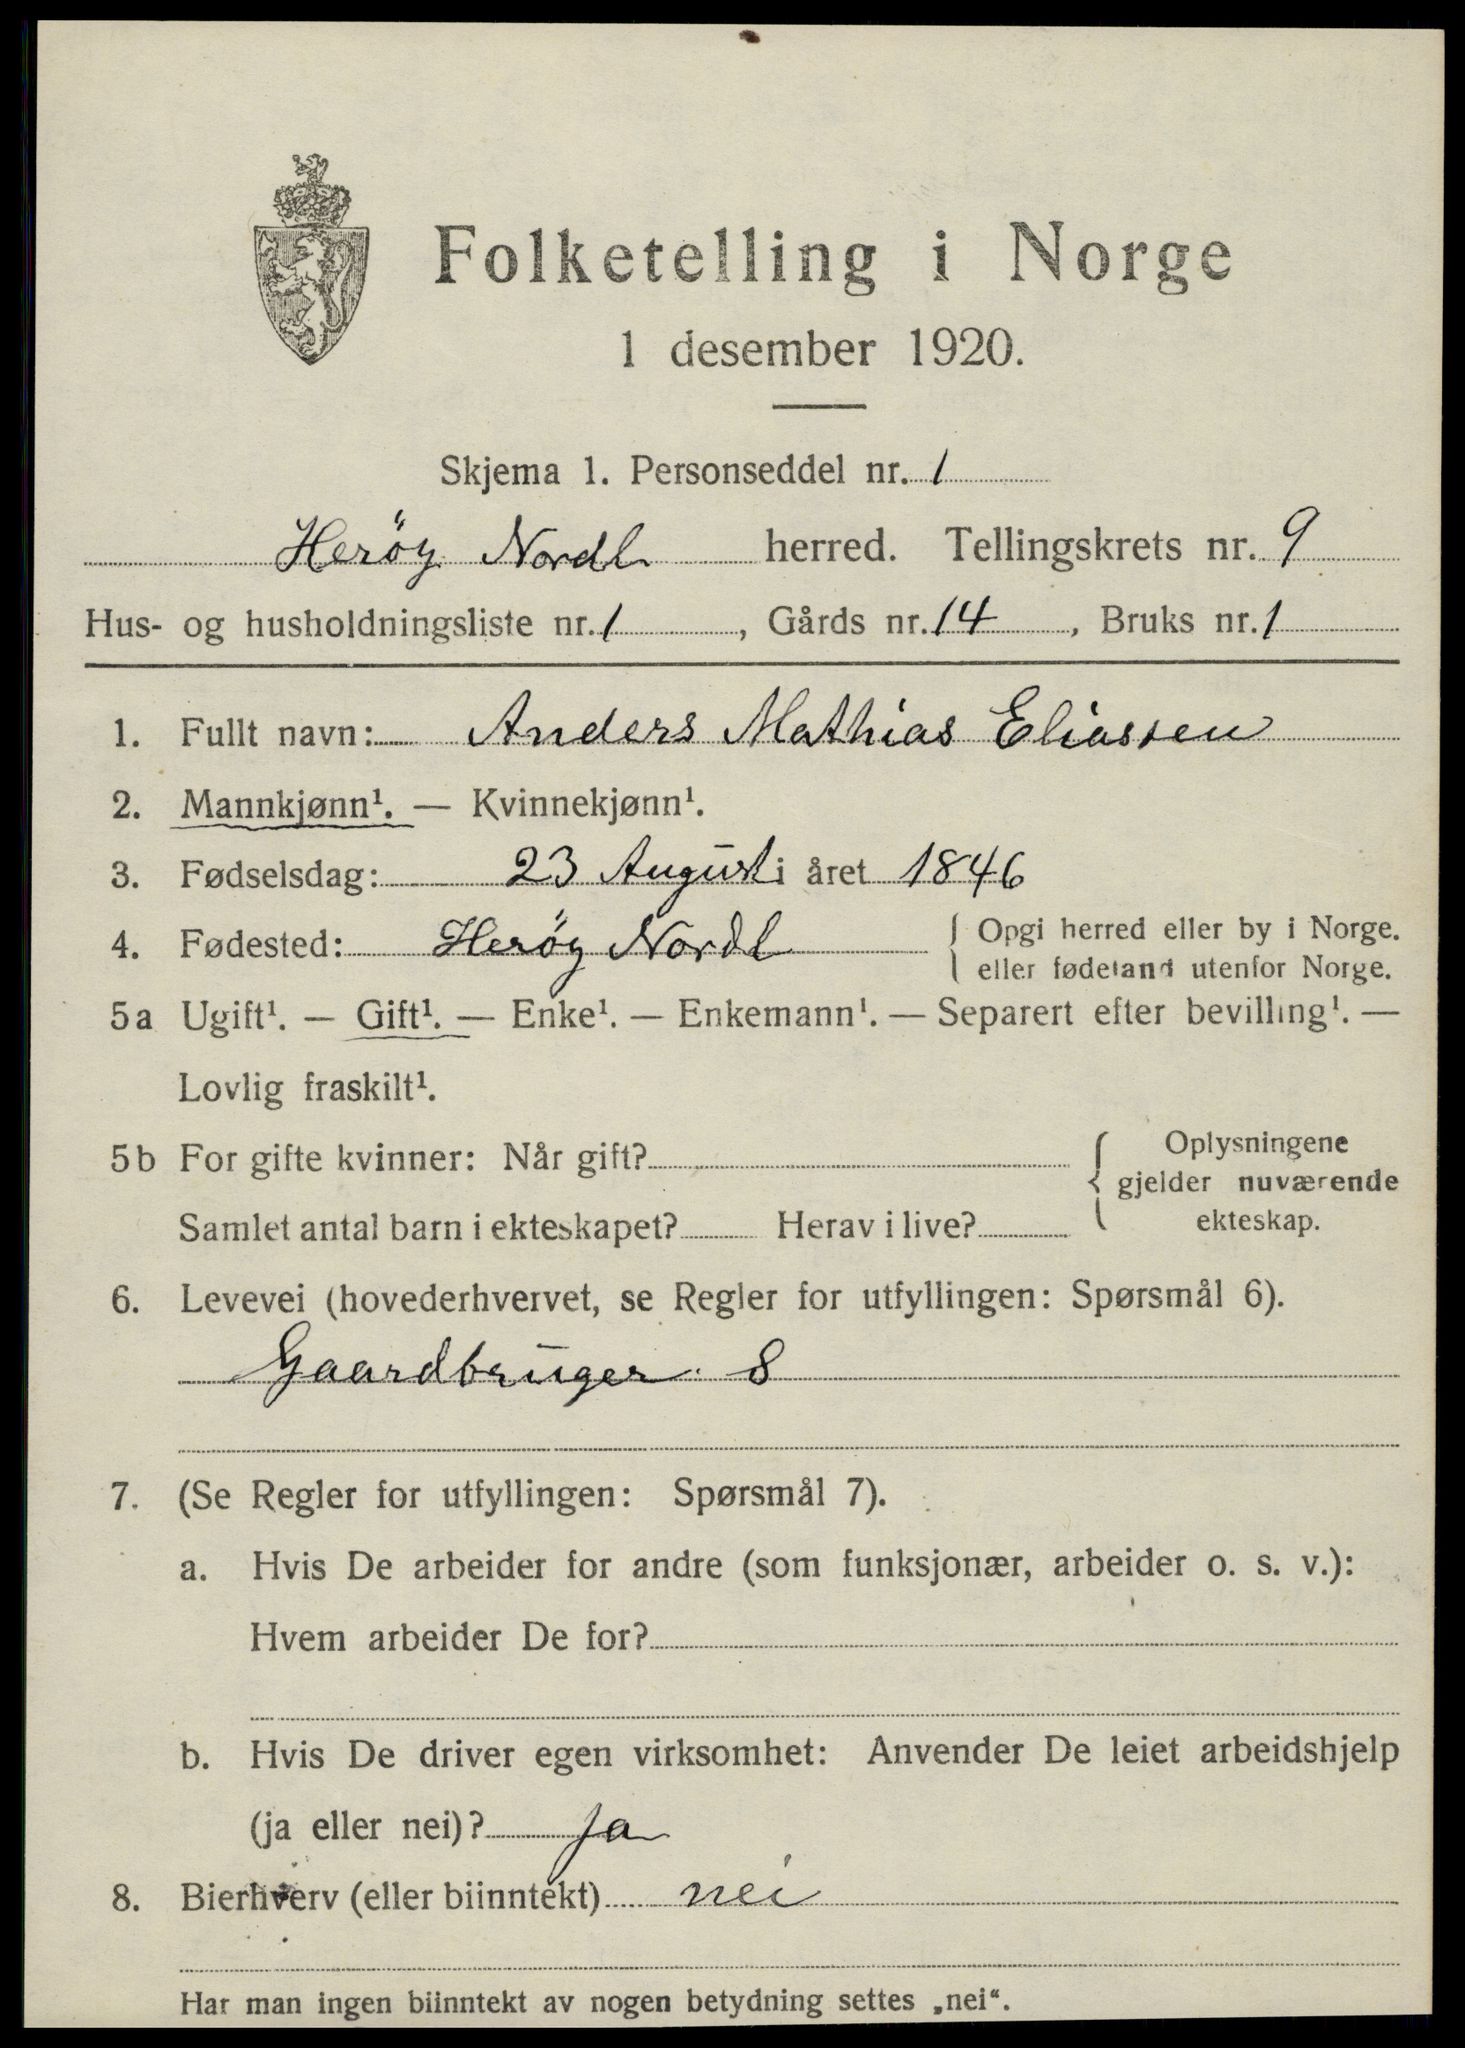 Folketelling i Norge
1 desember 1920.
Skjema 1. Personseddel nr. 1
Herøy Nordl herred. Tellingskrets nr. 9
Hus- og husholdningsliste nr. 1, Gårds nr. 14, Bruks nr. 1
1. Fullt navn: Anders Mathias Eliassen
2. Mannkjønn¹. — Kvinnekjønn¹.
3. Fødselsdag: 23 August i året 1846
4. Fødested: Herøy Nordl { Opgi herred eller by i Norge.
eller fødeland utenfor Norge.
5a Ugift¹. — Gift¹. — Enke¹. — Enkemann¹. — Separert efter bevilling¹. —
Lovlig fraskilt¹.
5b For gifte kvinner: Når gift? { Oplysningene
gjelder nuværende
Samlet antal barn i ekteskapet? Herav i live? ekteskap.
6. Levevei (hovederhvervet, se Regler for utfyllingen: Spørsmål 6).
Gaardbruger. S
7. (Se Regler for utfyllingen: Spørsmål 7).
a. Hvis De arbeider for andre (som funksjonær, arbeider o. s. v.):
Hvem arbeider De for?
b. Hvis De driver egen virksomhet: Anvender De leiet arbeidshjelp
(ja eller nei)? Ja
8. Bierhverv (eller biinntekt) nei
Har man ingen biinntekt av nogen betydning settes „nei“.